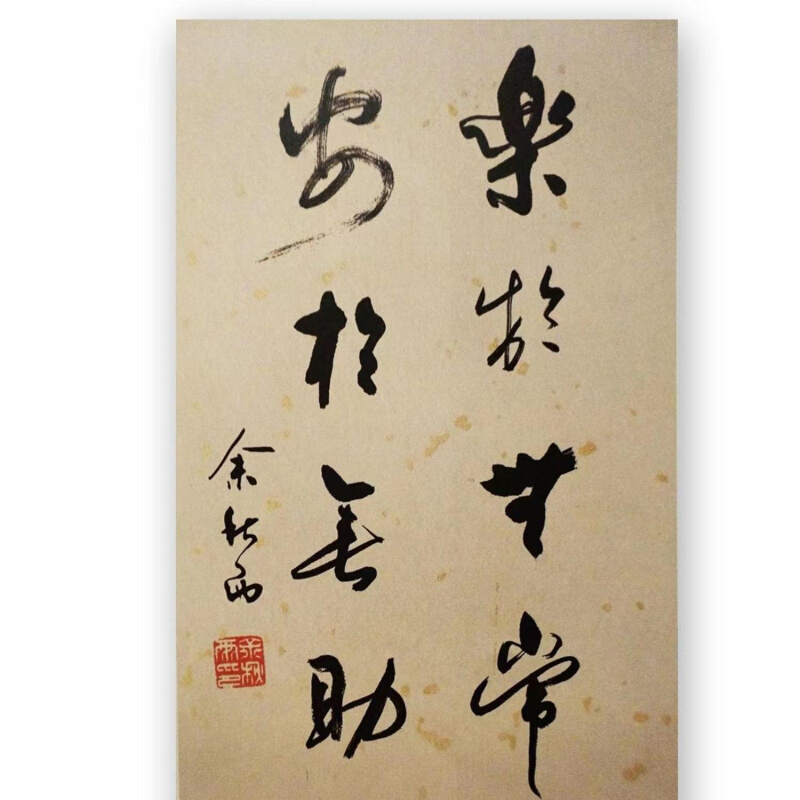 樂於無常
安於無助
余秋雨
余秋雨印